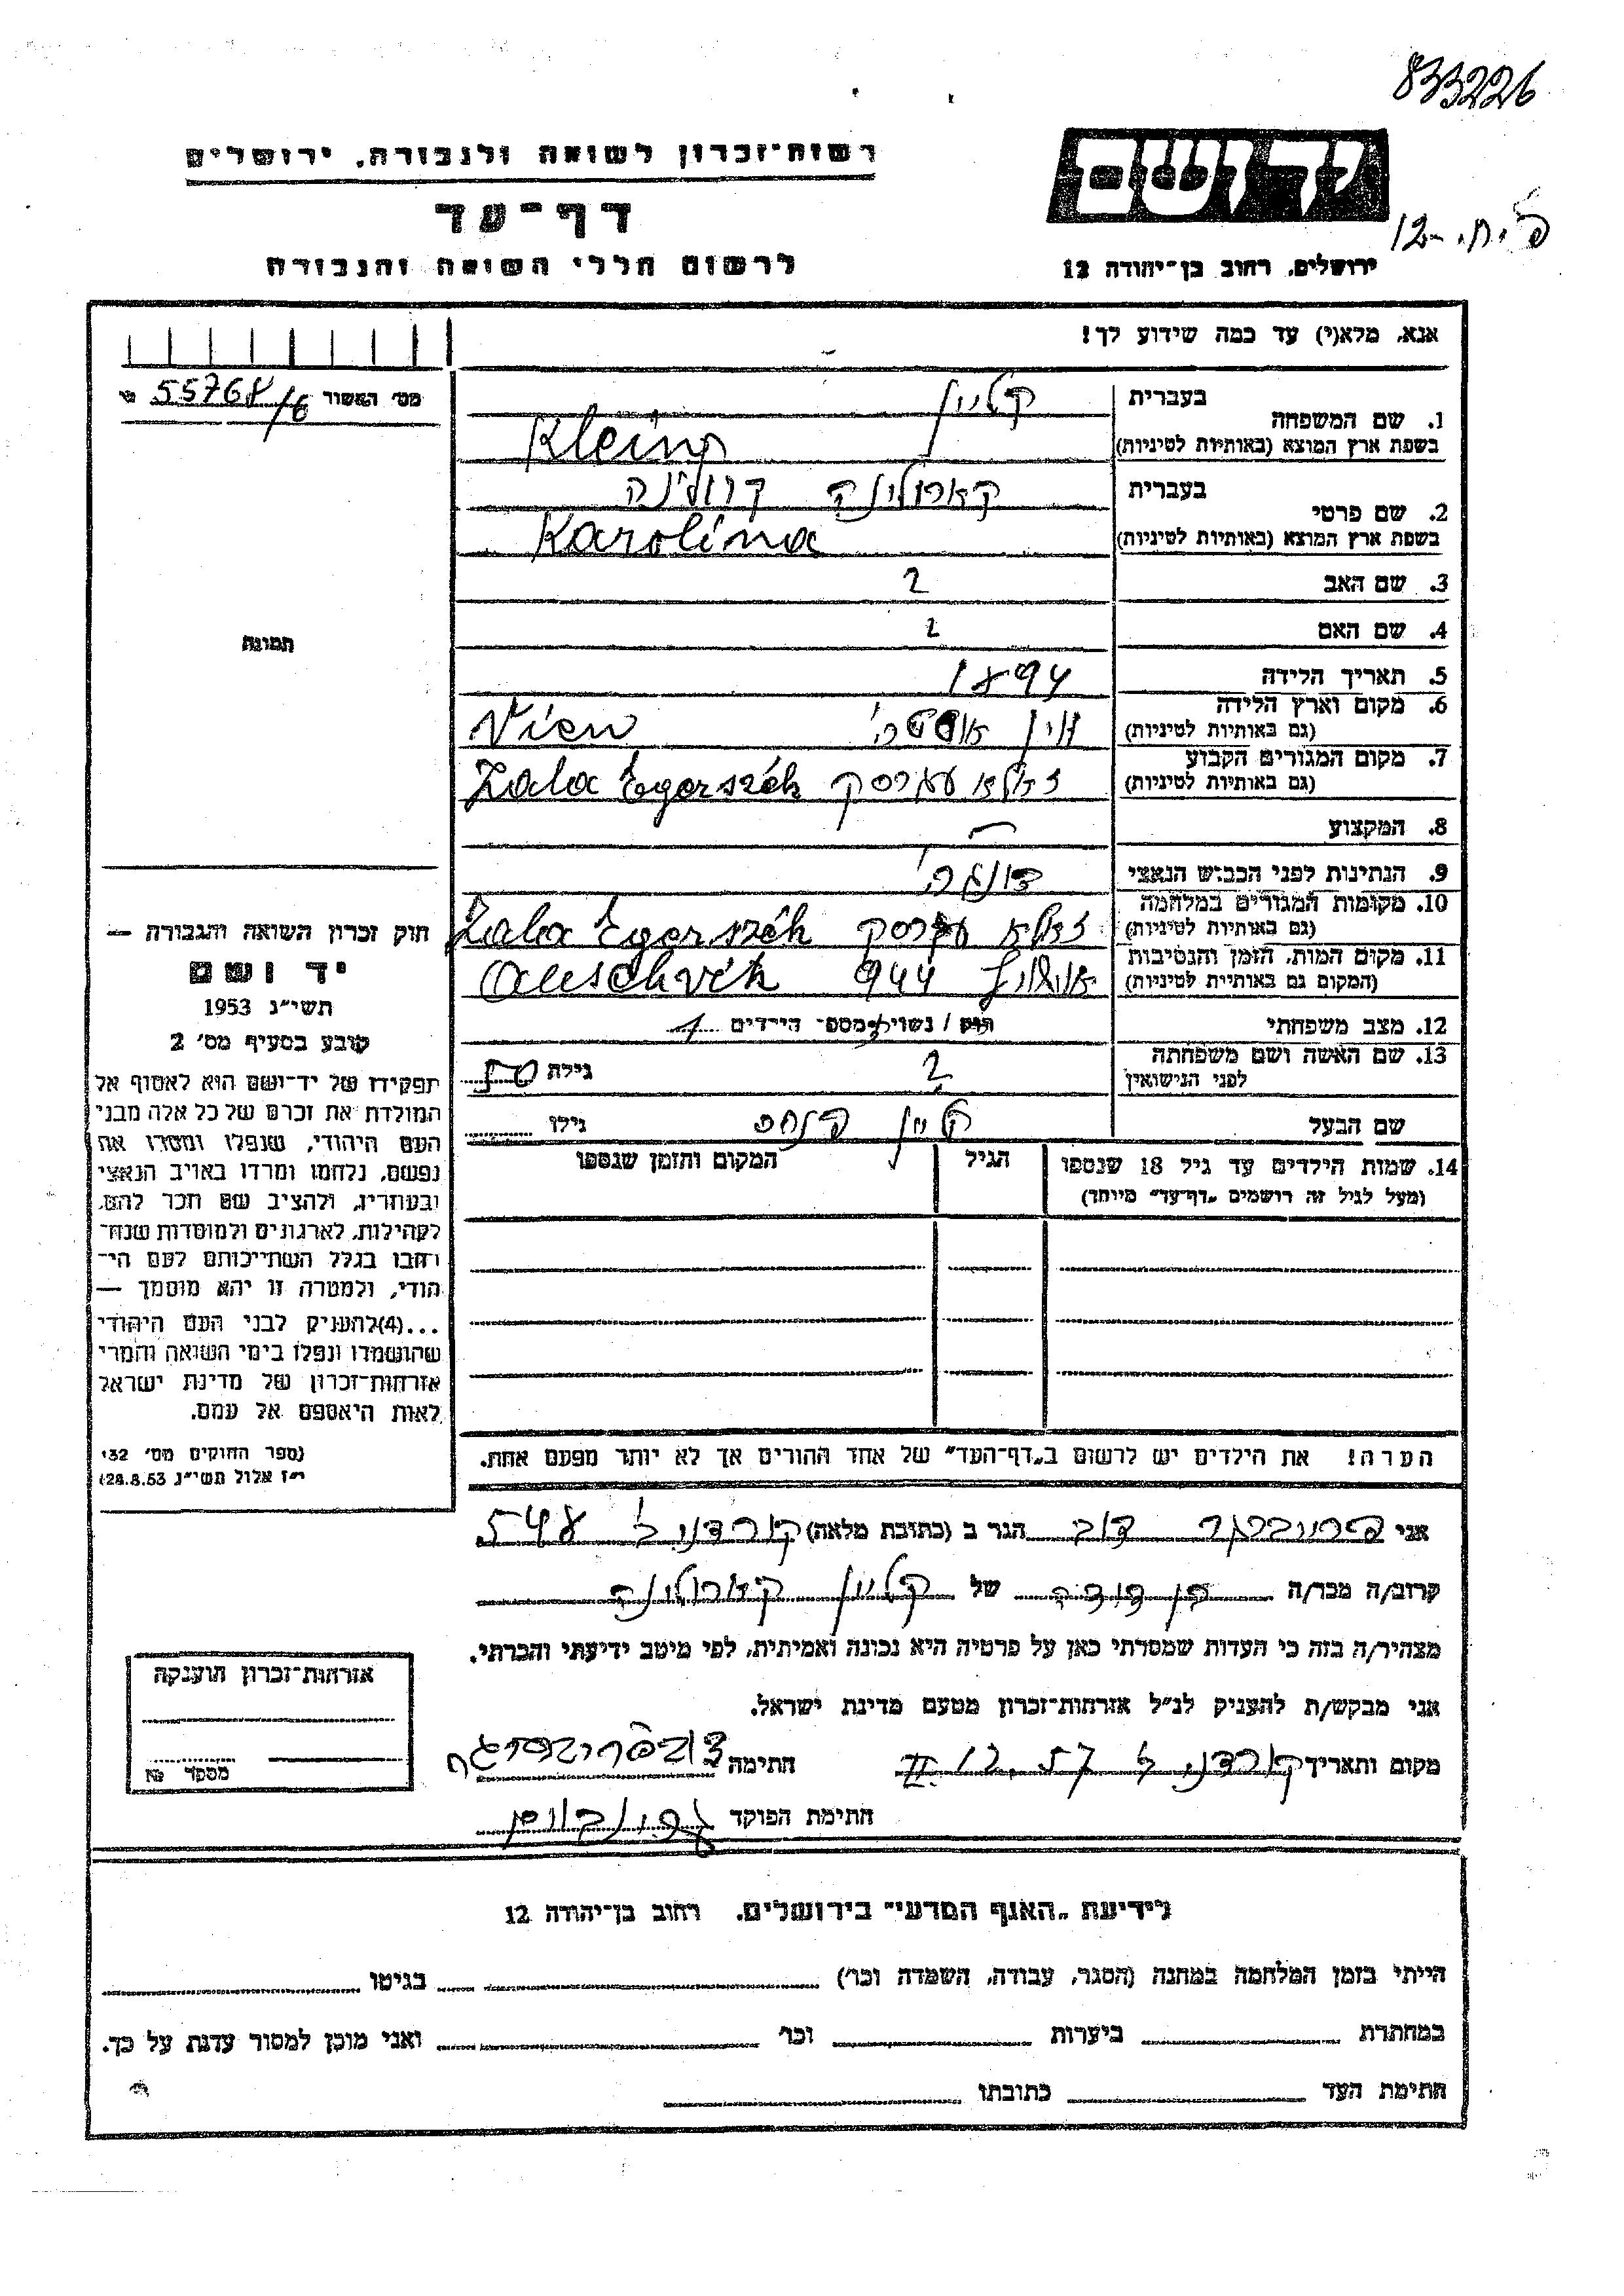 833226
רשות־זכרון לשואה ולגבורה, ירושלים
ידושם
דף־עד
לרשום חללי השואה והגבורה
ירושלים, רחוב בן־יהודה 12
אנא, מלא(י) עד כמה שידוע לך!
מס׳ האשור 55768/6
1. שם המשפחה
בעברית קליין
בשפת ארץ המוצא (באותיות לטיניות) Klein
2. שם פרטי
בעברית קארולינה
בשפת ארץ המוצא (באותיות לטיניות) Karolina
3. שם האב ?
4. שם האם ?
5. תאריך הלידה 1894
6. מקום וארץ הלידה
(גם באותיות לטיניות) וין Vien
7. מקום המגורים הקבוע
(גם באותיות לטיניות) Zala Egerszék
8. המקצוע —
9. הנתינות לפני הכבוש הנאצי
10. מקומות המגורים במלחמה
(גם באותיות לטיניות) Zala Egerszék
11. מקום המות, הזמן והנסיבות
(המקום גם באותיות לטיניות) 944
12. מצב משפחתי רווק / נשוי מספר הילדים 1
13. שם האשה ושם משפחתה
לפני הנישואין ? גילה 50
שם הבעל קליין פנחס גילו
14. שמות הילדים עד גיל 18 שנספו
(מעל לגיל זה רושמים „דף־עד״ מיוחד)
הגיל
המקום והזמן שנספו
הערה! את הילדים יש לרשום ב„דף־העד״ של אחד ההורים אך לא יותר מפעם אחת.
תמונה
חוק זכרון השואה והגבורה —
יד ושם
תשי״ג 1953
קובע בסעיף מס׳ 2
תפקידו של יד־ושם הוא לאסוף אל
המולדת את זכרם של כל אלה מבני
העם היהודי, שנפלו ומסרו את
נפשם, נלחמו ומרדו באויב הנאצי
ובעוזריו, ולהציב שם וזכר להם,
לקהילות, לארגונים ולמוסדות שנח־
רבו בגלל השתייכותם לעם הי־
הודי, ולמטרה זו יהא מוסמך —
...(4)להעניק לבני העם היהודי
שהושמדו ונפלו בימי השואה והמרי
אזרחות־זכרון של מדינת ישראל
לאות היאספם אל עמם.
(ספר החוקים מס׳ 132
י״ז אלול תשי״ג 28.8.53)
אני דוב הגר ב (כתובת מלאה) 548
קרוב/ה מכר/ה של קליין קארולינה
מצהיר/ה בזה כי העדות שמסרתי כאן על פרטיה היא נכונה ואמיתית, לפי מיטב ידיעתי והכרתי.
אני מבקש/ת להעניק לנ״ל אזרחות־זכרון מטעם מדינת ישראל.
מקום ותאריך 12.57 חתימה
חתימת הפוקד
אזרחות־זכרון הוענקה
מספר №
לידיעת „האגף המדעי״ בירושלים, רחוב בן־יהודה 12
הייתי בזמן המלחמה במחנה (הסגר, עבודה, השמדה וכו׳) בגיטו
במחתרת ביערות וכו׳ ואני מוכן למסור עדות על כך.
חתימת העד כתובתו